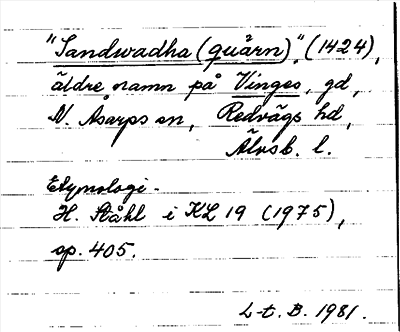 "Sandwadha (quärn)". (1424),
äldre namn på Vinges, gd,
N. Åsarps sn, Redvägs hd,
Älvsb. l.
Etymologi.
H. Ståhl i KL 19 (1975),
sp. 405.
L-t. B. 1981.